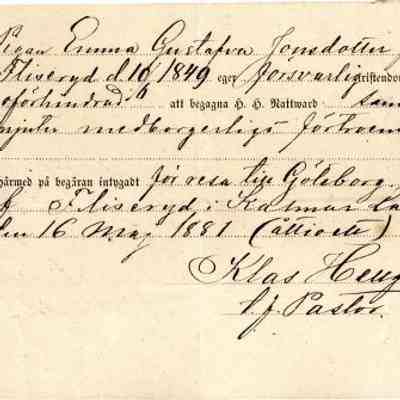 Pigan Emma Gustafva Jonsdotter f
Fliseryd d. 10/6 1849 eger försvarlig kristendo
oförhindrad att begagna H. H. Nattward sam
njuter medborgerligt förtroen
härmed på begäran intygadt för resa till Göteborg
Fliseryd i Kalmar Lä
den 16 Maj 1881 (åttioett)
Klas
v. f. Pastor.